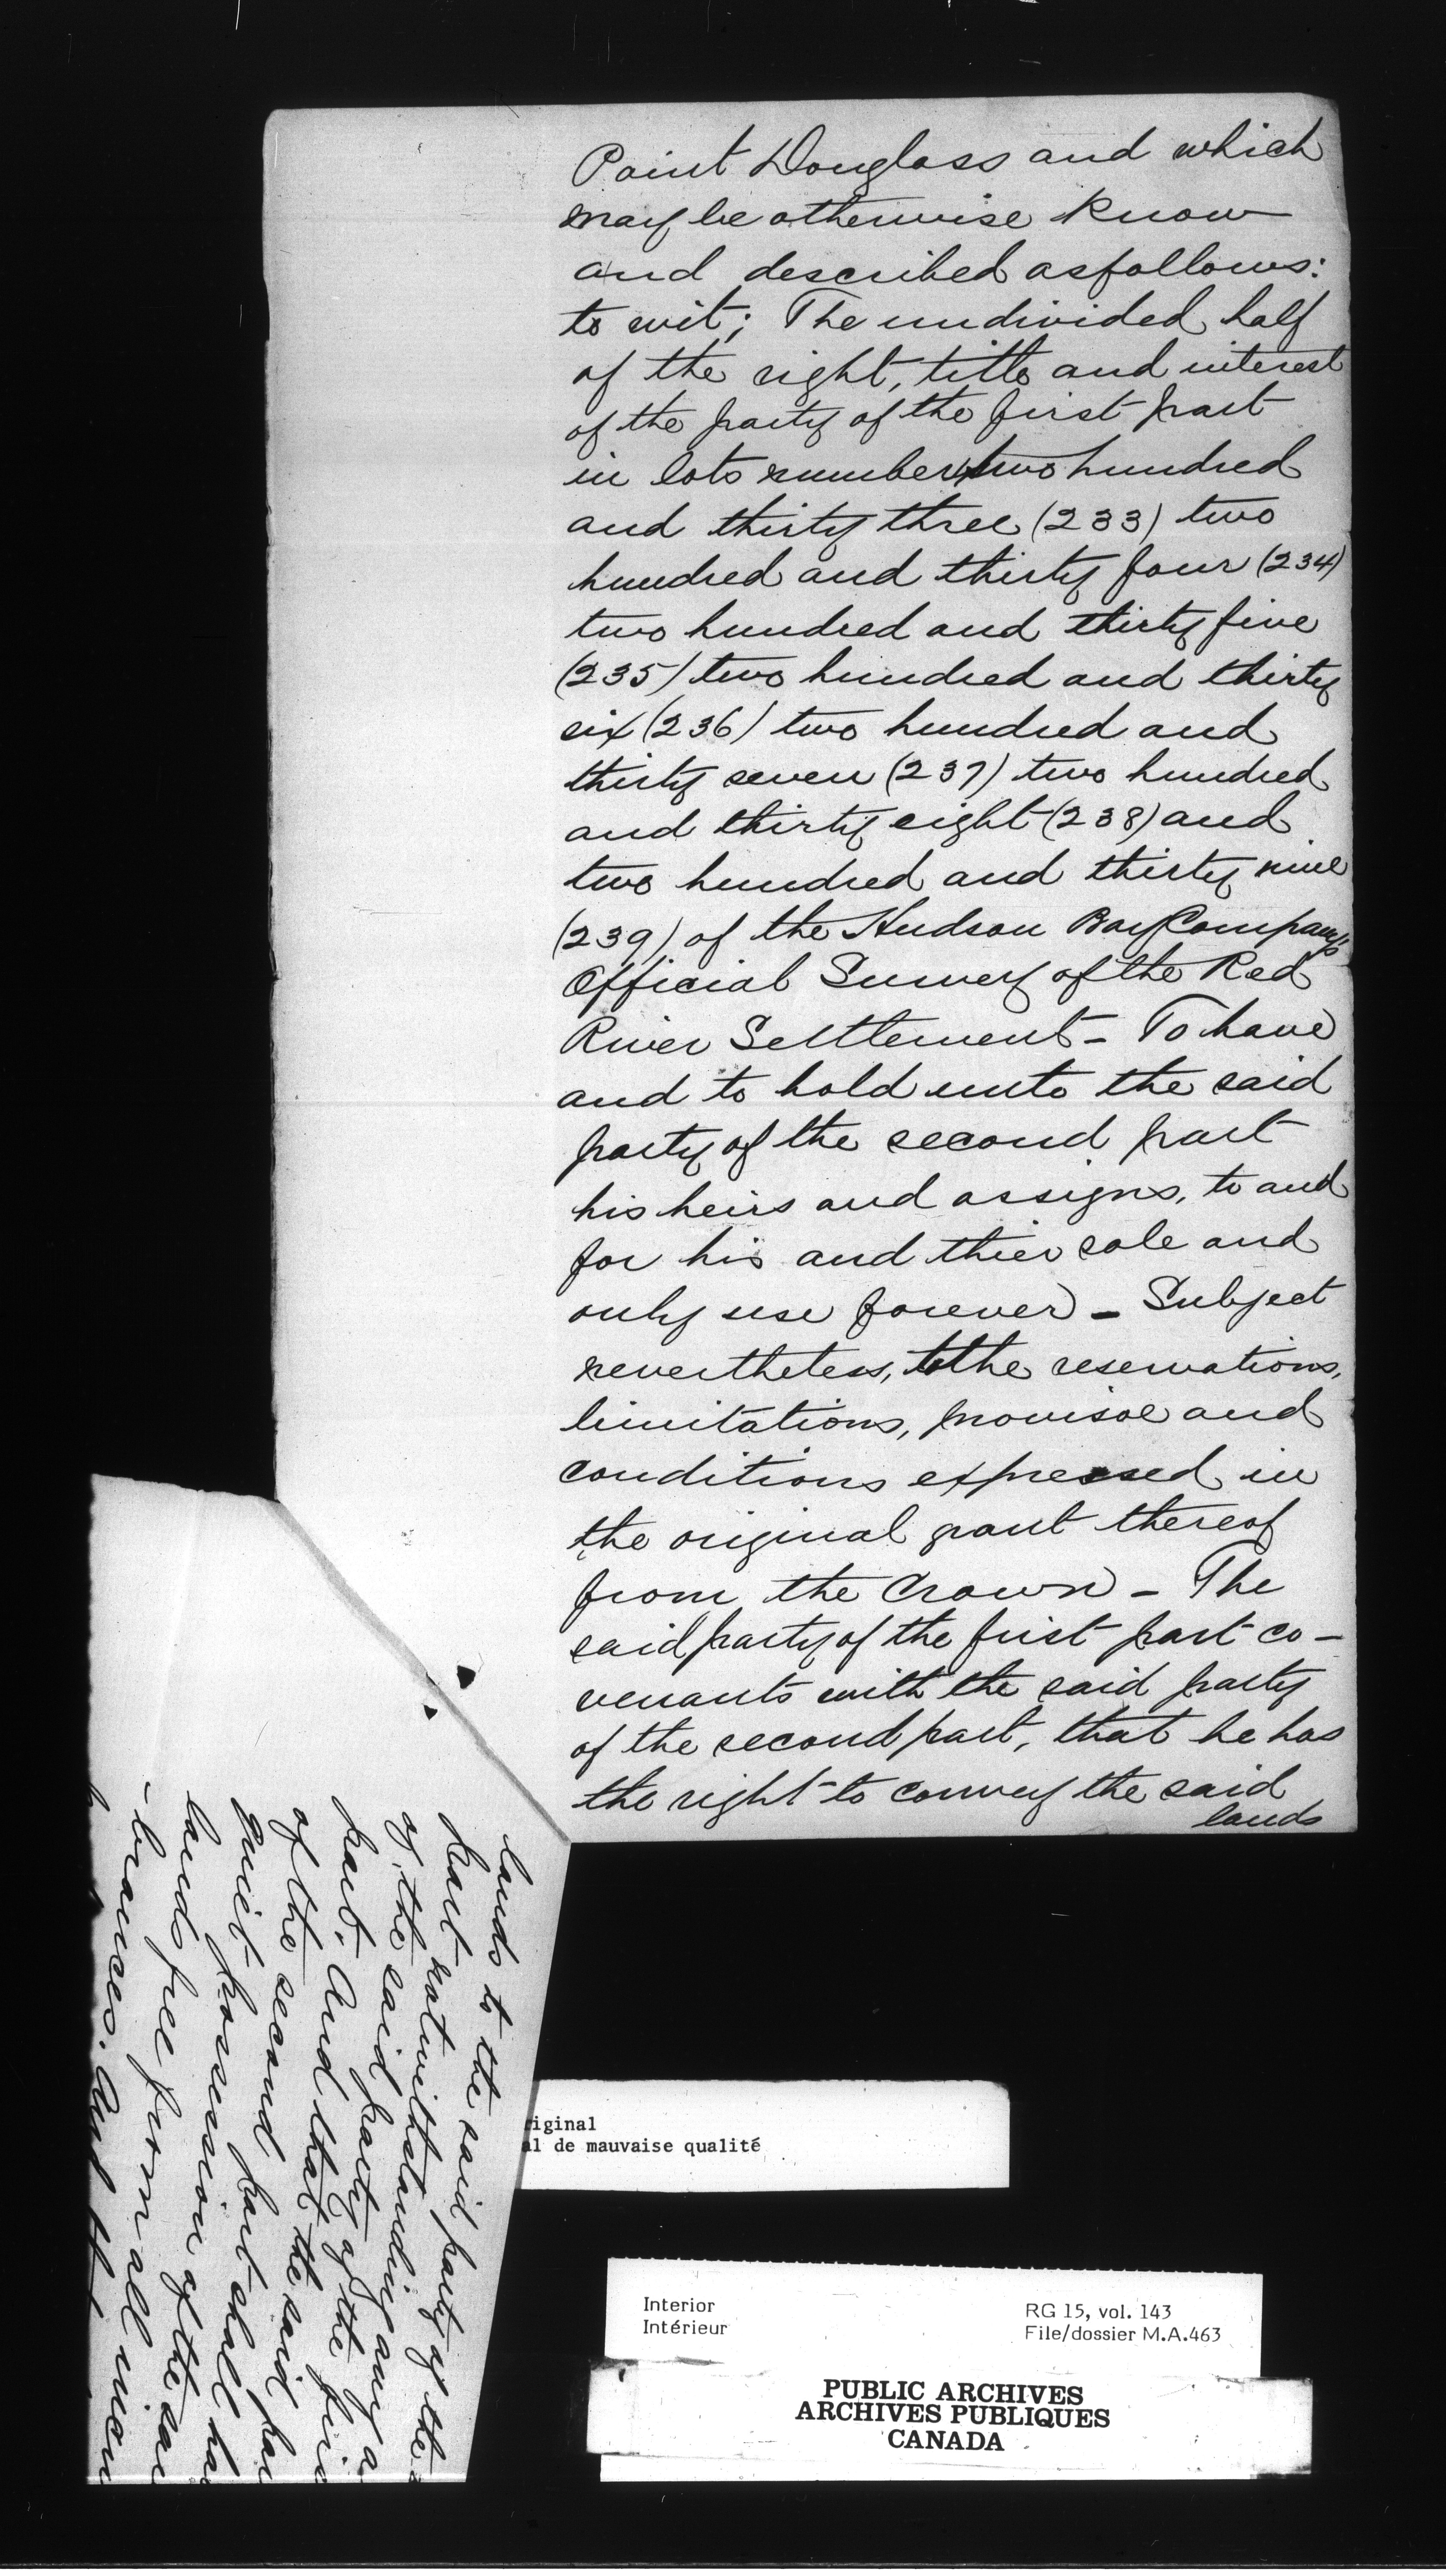 Point Douglass and which
may be otherwise know
and described as follows:
to wit; The undivided half
of the right, title and interest
of the party of the first part
in lots number two hundred
and thirty three (233) two
hundred and thirty four (234)
two hundred and thirty five
(235) two hundred and thirty
six (236) two hundred and
thirty seven (237) two hundred
and thirty eight (238) and
two hundred and thirty nine
(239) of the Hudson Bay Company's
Official Survey of the Red
River Settlement - To have
and to hold unto the said
party of the second part
his heirs and assigns, to and
for his and thier sole and
only use forever - Subject
nevertheless, to the reservations,
limitations, provisoe and
conditions expressed in
the original grant thereof
from the Crown - The
said party of the first part co-
venants with the said party
of the second part, that he has
the right to convey the said
lands
lands to the said party of the
part notwithstanding any a
of the said party of the firs
part. And that the said par
of the second part shall ha
quiet possession of the sai
lands free from all incum
-brances. And
riginal
al de mauvaise qualité
Interior
Intérieur
RG 15, vol. 143
File/dossier M.A.463
PUBLIC ARCHIVES
ARCHIVES PUBLIQUES
CANADA